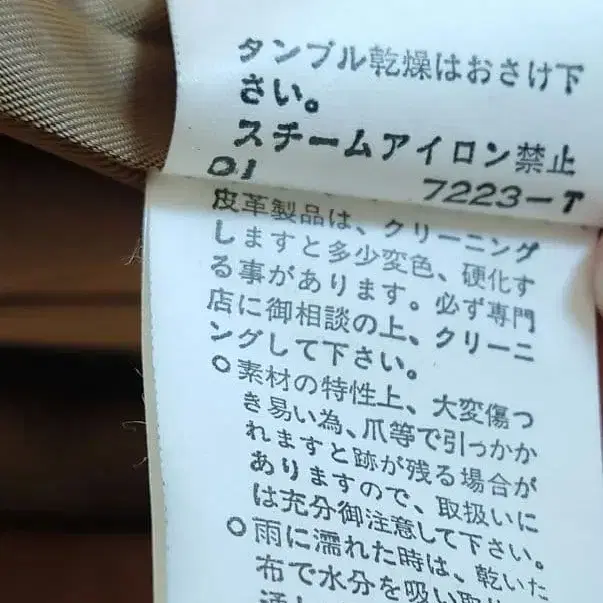 タンブル乾燥はおさけ下
さい。
スチームアイロン禁止
01 7223-T
皮革製品は、クリーニング
しますと多少変色、硬化す
る事があります。必ず専門
店に御相談の上、クリーニ
ングして下さい。
○素材の特性上、大変傷つ
き易い為、爪等で引っかか
れますと跡が残る場合が
ありますので、取扱いに
は充分御注意して下さい。
○雨に濡れた時は、乾いた
布で水分を吸い取